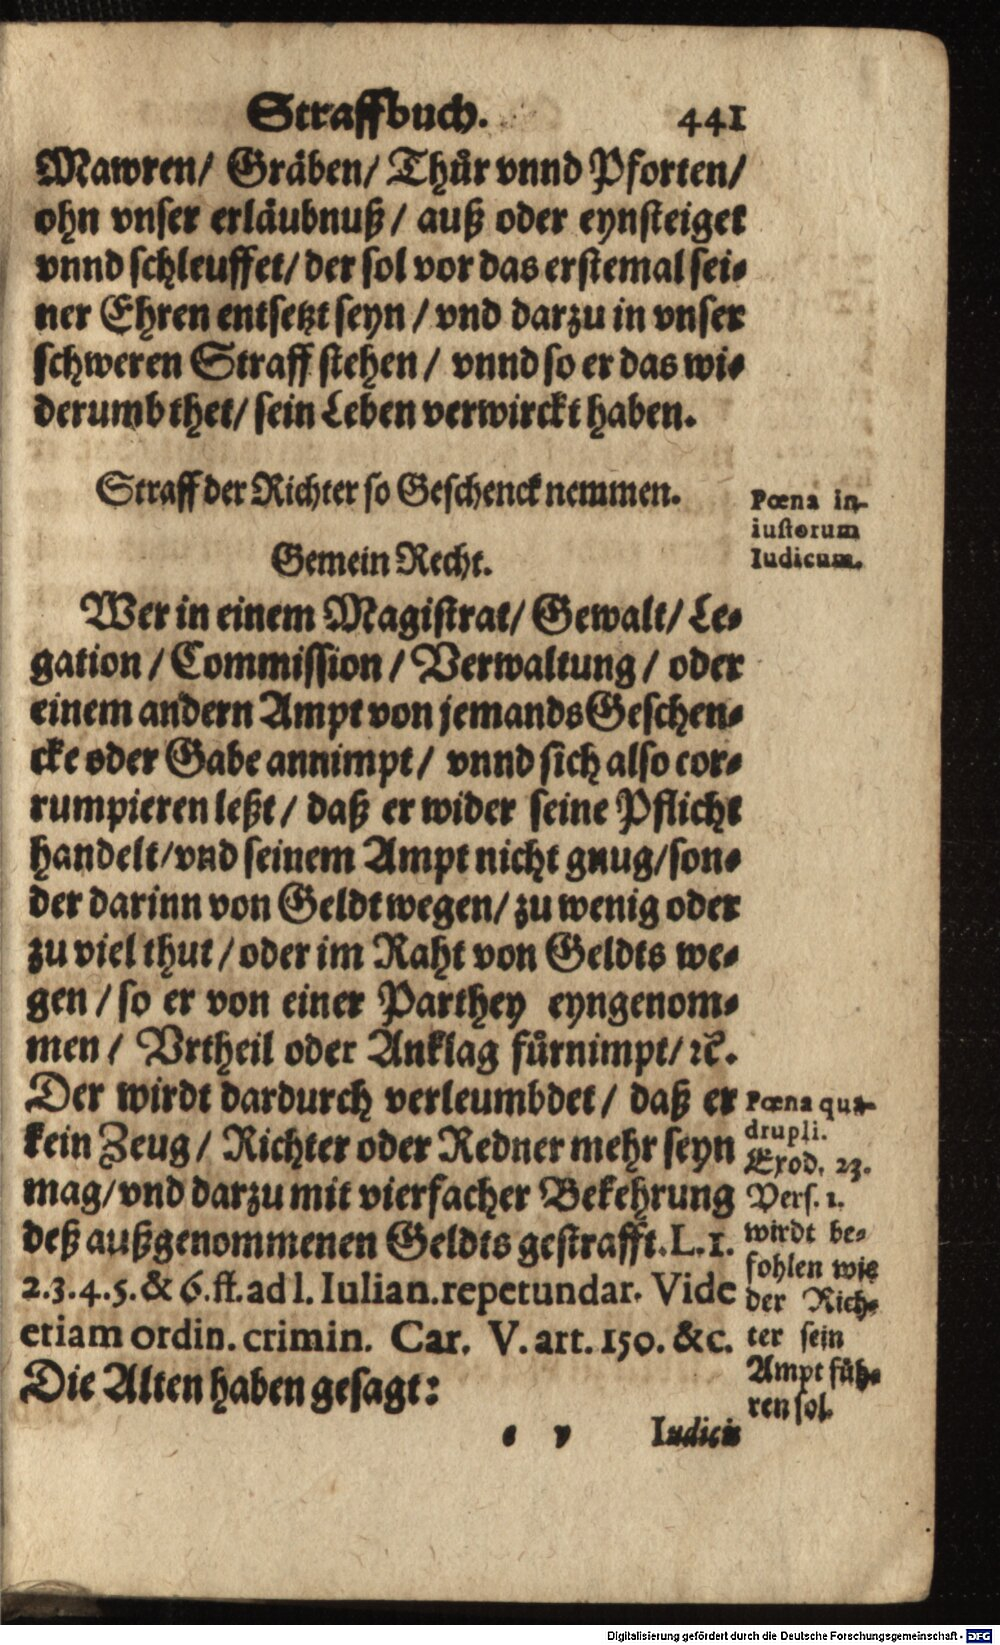 Straffbuch. 441
Mawren/ Gräben/ Thůr vnnd Pforten/
ohn vnser erläubnuß/ auß oder eynsteiget
vnnd schleuffet/ der sol vor das erstemal sei-
ner Ehren entsetzt seyn/ vnd darzu in vnser
schweren Straff stehen/ vnnd so er das wi-
derumb thet/ sein Leben verwirckt haben.
Straff der Richter so Geschenck nemmen.
Pœna in-
iustorum
Iudicum.
Gemein Recht.
Wer in einem Magistrat/ Gewalt/ Le-
gation/ Commission/ Verwaltung/ oder
einem andern Ampt von jemands Geschen-
cke oder Gabe annimpt/ vnnd sich also cor-
rumpieren leßt/ daß er wider seine Pflicht
handelt/ vnd seinem Ampt nicht gnug/ son-
der darinn von Geldt wegen/ zu wenig oder
zu viel thut/ oder im Raht von Geldts we-
gen/ so er von einer Parthey eyngenom-
men/ Vrtheil oder Anklag fůrnimpt/ ꝛc.
Der wirdt dardurch verleumbdet/ daß er
kein Zeug/ Richter oder Redner mehr seyn
mag/ vnd darzu mit vierfacher Bekehrung
deß außgenommenen Geldts gestrafft. L. 1.
2. 3. 4. 5. & 6. ff. ad l. Iulian. repetundar. Vide
etiam ordin. crimin. Car. V. art. 150. &c.
Die Alten haben gesagt:
Pœna qua-
drupli.
Exod. 23.
Vers. 1.
wirdt be-
fohlen wie
der Rich-
ter sein
Ampt fůh-
ren sol.
e v Iudicis
Digitalisierung gefördert durch die Deutsche Forschungsgemeinschaft - DFG